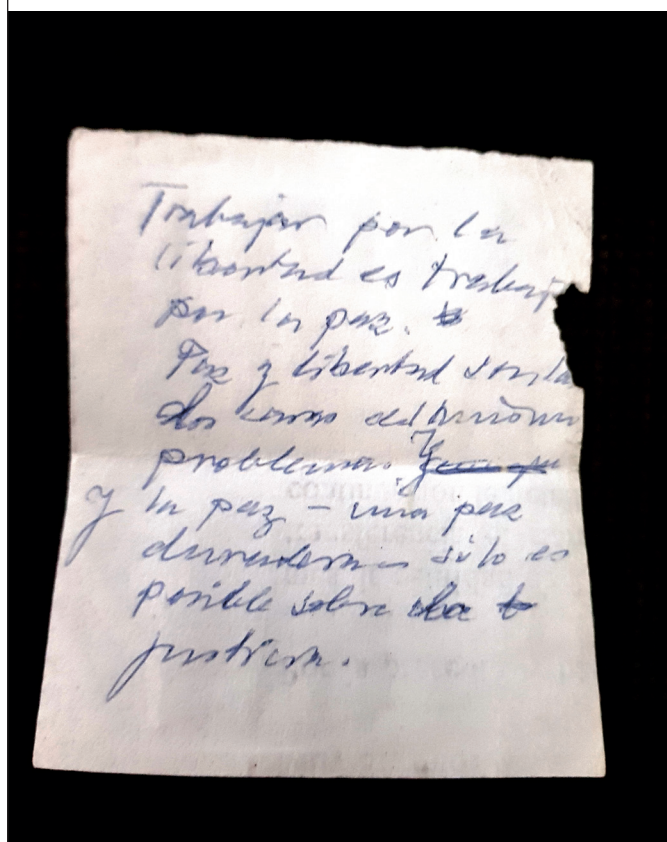 Trabajar por la
libertad es trabaj
por la paz.
Paz y libertad son la
dos caras del mismo
problema. Y
y la paz – una paz
duradera – sólo es
posible sobre la
justicia.